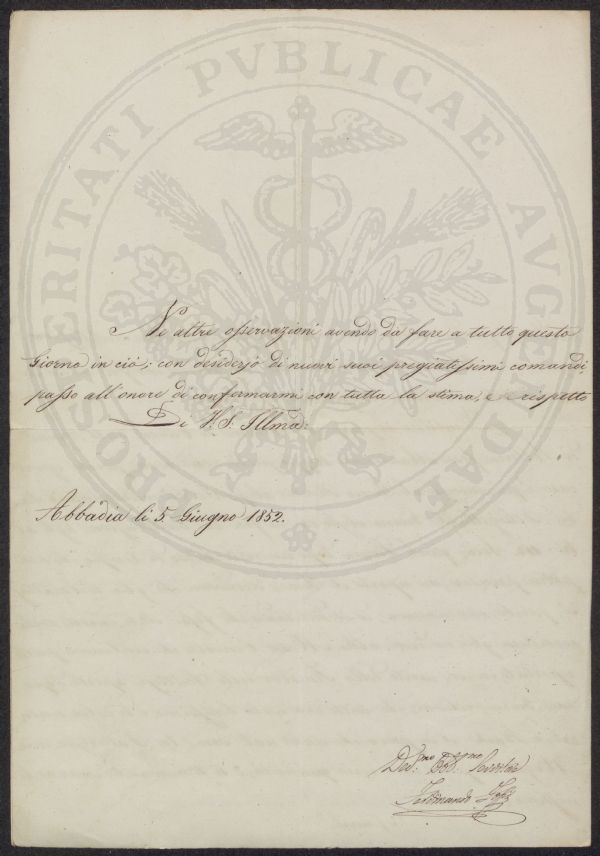 PROSPERITATI PVBLICAE AVGENDAE
Ne altre osservazioni avendo da fare a tutto questo
Giorno in ciò; con desiderjo di nuovi suoi pregiatissimi comandi
passo all'onore di confermarmi con tutta la stima, e rispetto
Di V: S: Illma:
Abbadia li 5. Giugno 1852.
Dev.mo Obb.mo Servitor
Ferdinando